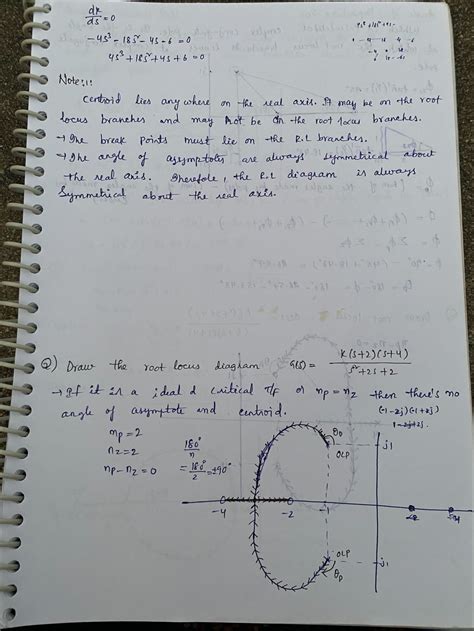 dk/ds = 0
-4s³ - 18s² - 4s - 6 = 0
4s³ + 18s² + 4s + 6 = 0
Note:1:
Centroid lies any where on the real axis. It may be on the root
locus branches and may not be on the root locus branches.
→ The break points must lie on the R.L branches.
→ The angle of asymptotes are always symmetrical about
the real axis. Therefore, the R.L diagram is always
Symmetrical about the real axis.
Q) Draw the root locus diagram G(s) = K(s+2)(s+4) / s²+2s+2
→ If it is a ideal & critical T/F or np = nz then there's no
angle of asymptote and centroid.
(-1-2j)(-1+2j)
1-2j+2j
np = 2
nz = 2
np - nz = 0
180°/n
= 180°/2 = ±90°
θD
OLP
j1
-4
-2
-1
-2
-4
OLP
θp
j1